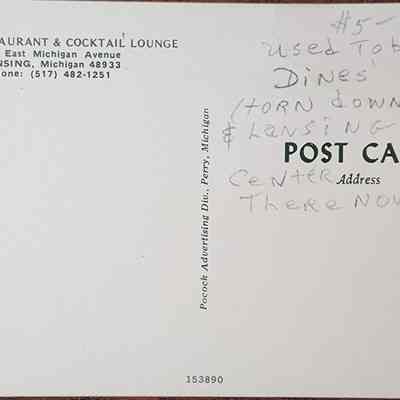 AURANT & COCKTAIL LOUNGE
East Michigan Avenue
NSING, Michigan 48933
one: (517) 482-1251
#5-
Used To b
Dines'
(torn down
& Lansing
POST CA
Center
Address
There Now
Pocock Advertising Div., Perry, Michigan
153890